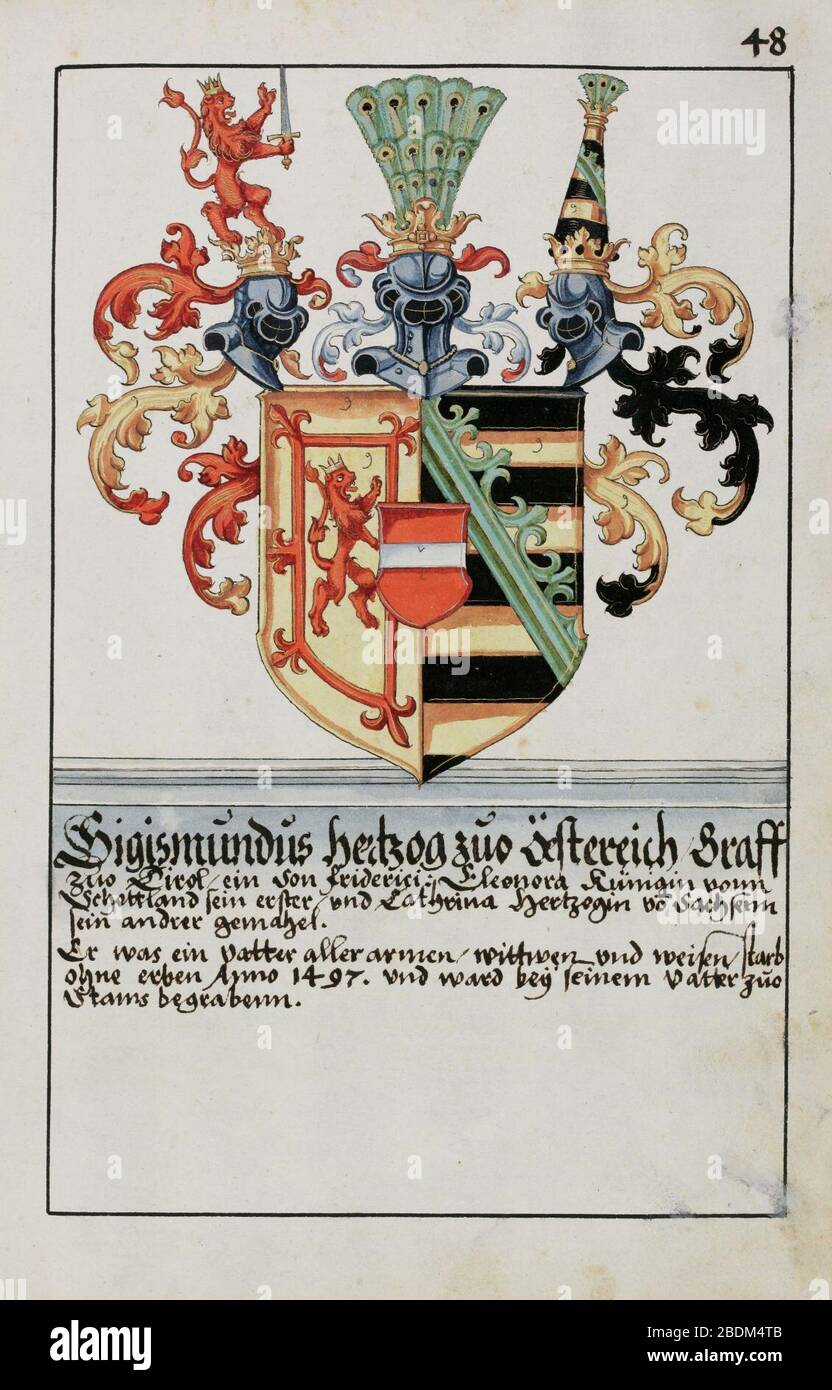 48
Sigismundus Hertzog zuo Össtereich / Graff
zuo Tirol / ein Son Friderici: Eleonora Künigin vonn
Schottland sein erster / und Cathrina Hertzogin vō Sachsenn
sein andrer gemahel.
Er was ein vatter aller armen / wittwen und weisen / starb
ohne erben Anno 1497. und ward bey seinem Vatter zuo
Stams begrabenn.
alamy
alamy
Image ID: 2BDM4TB
www.alamy.com